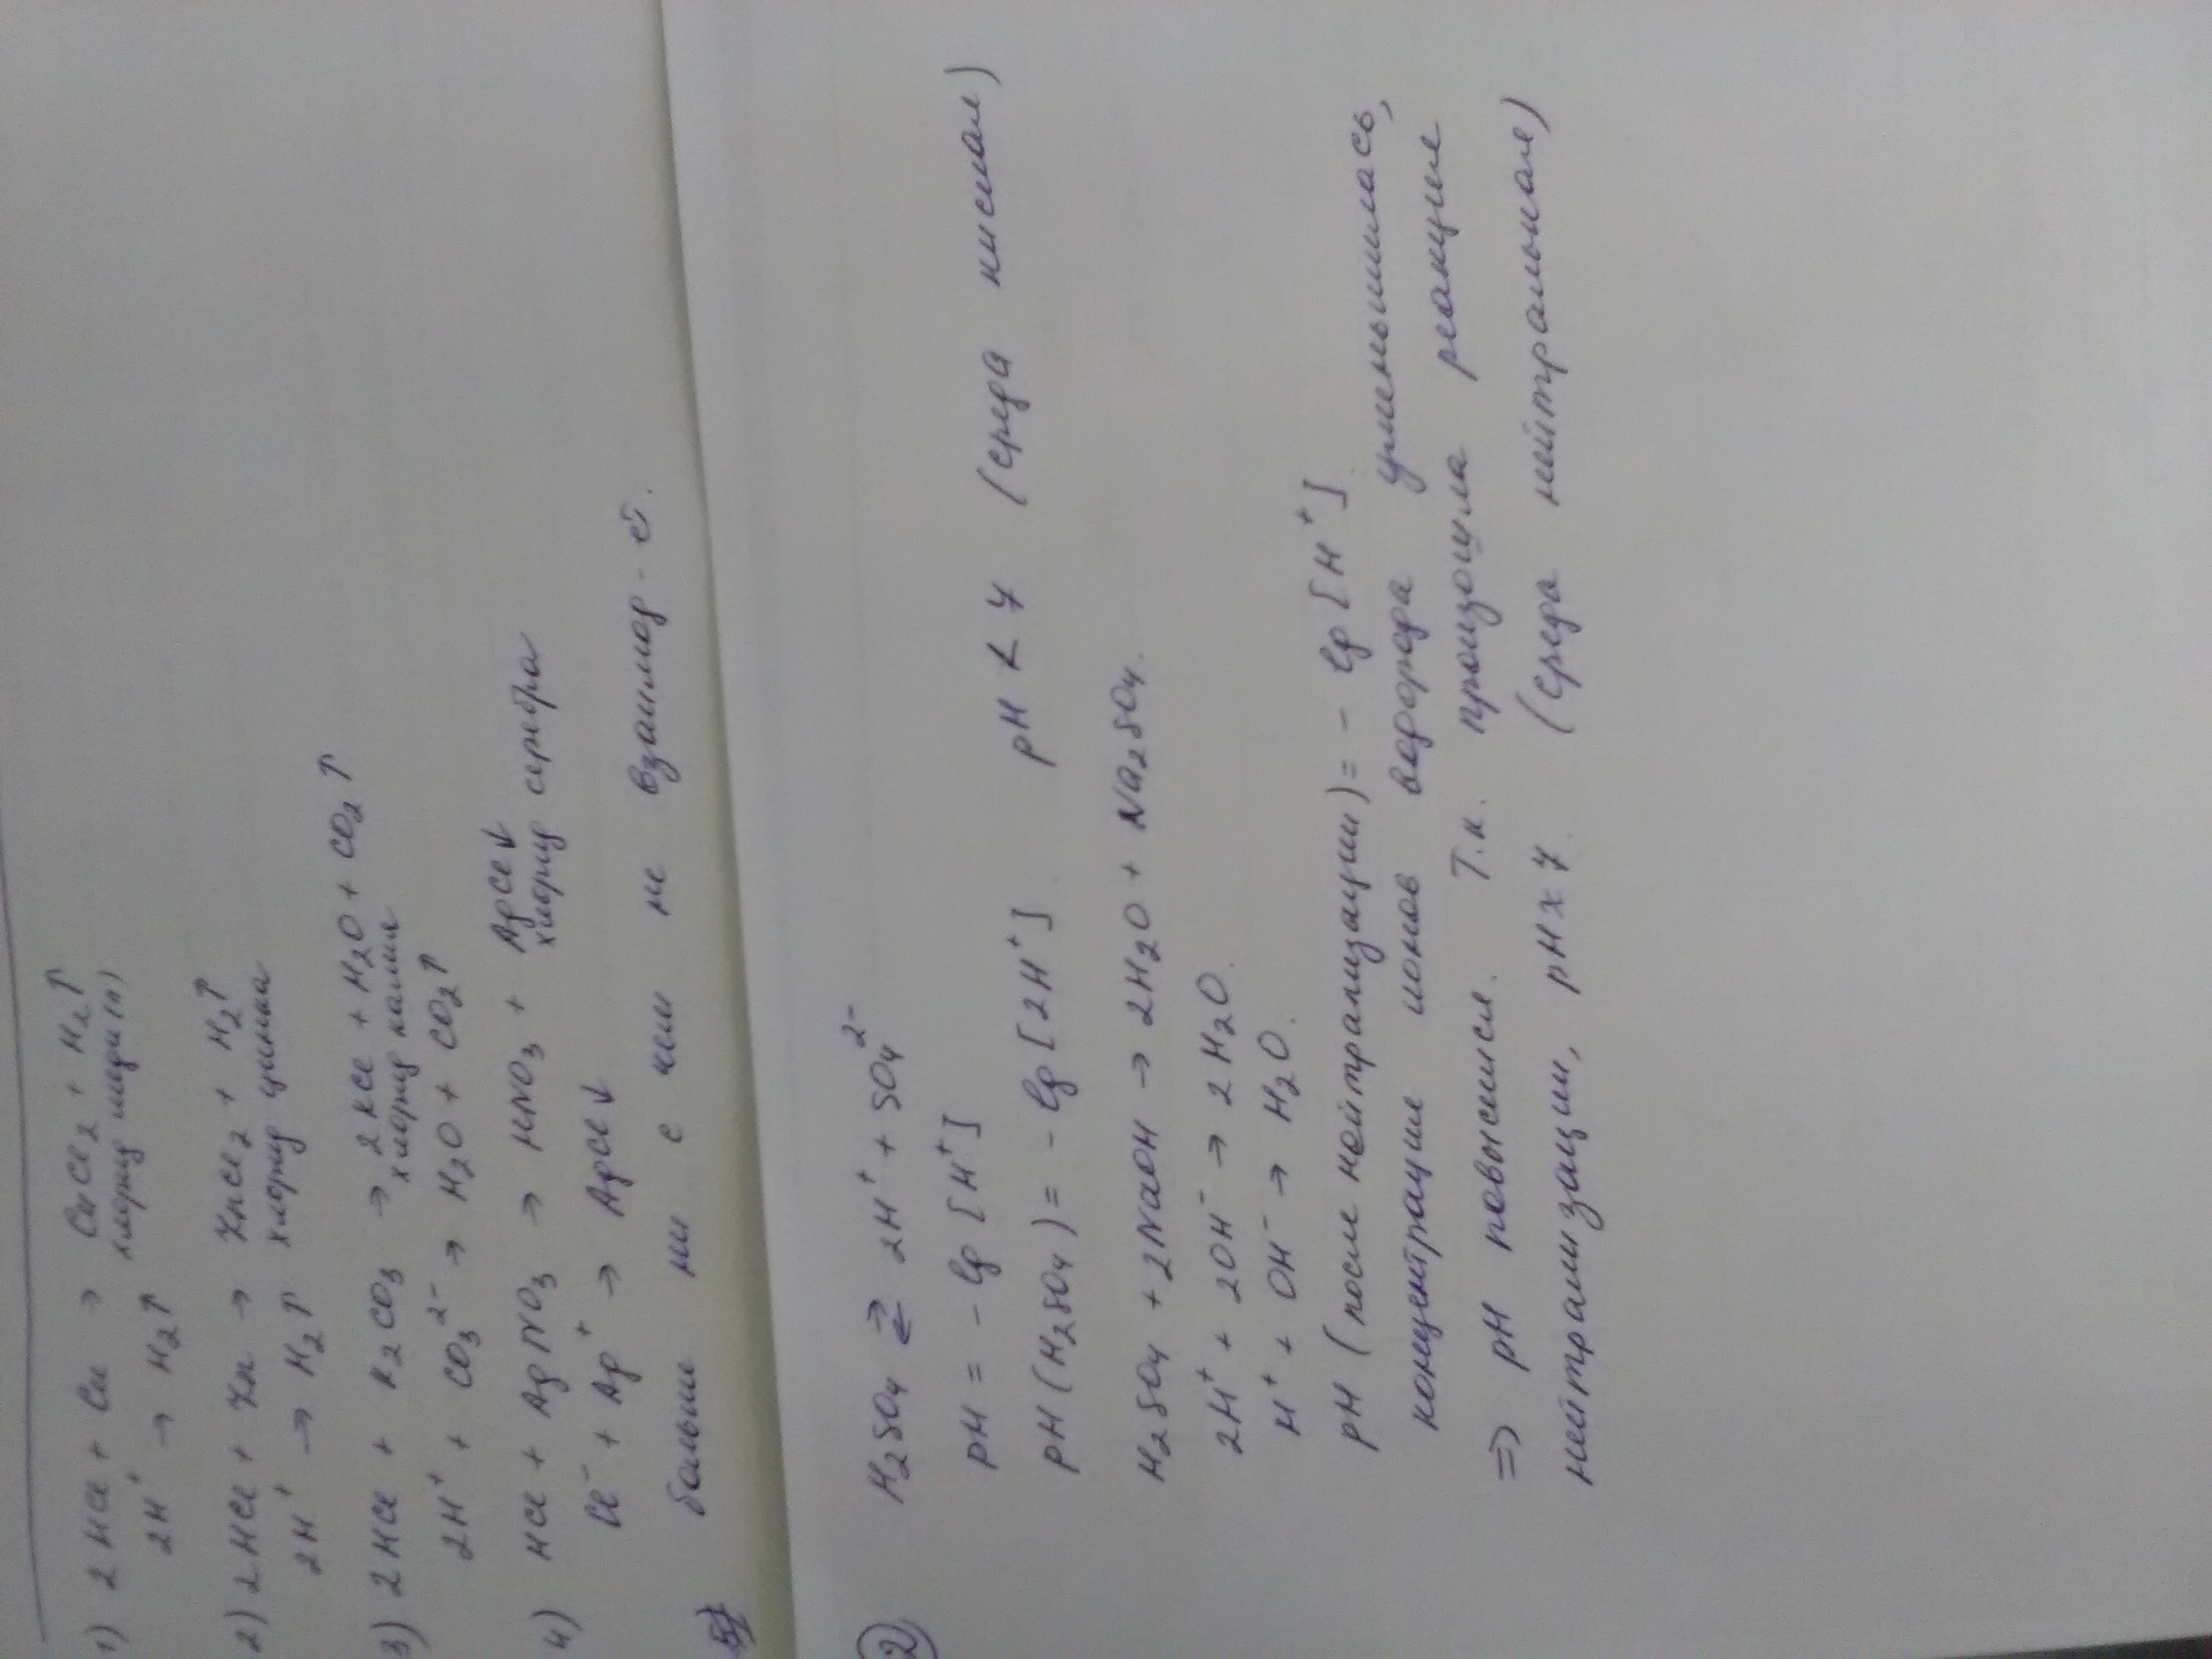 1) 2HCl + Cu → CuCl₂ + H₂↑
хлорид меди (II)
2H⁺ → H₂↑
2) 2HCl + Zn → ZnCl₂ + H₂↑
хлорид цинка
2H⁺ → H₂↑
3) 2HCl + K₂CO₃ → 2KCl + H₂O + CO₂↑
хлорид калия
2H⁺ + CO₃²⁻ → H₂O + CO₂↑
4) HCl + AgNO₃ → HNO₃ + AgCl↓
хлорид серебра
Cl⁻ + Ag⁺ → AgCl↓
больше ни с чем не взаимод-ет.
2 H₂SO₄ ⇄ 2H⁺ + SO₄²⁻
pH = - lg [H⁺]
pH (H₂SO₄) = - lg [2H⁺] pH < 7 (среда кислая)
H₂SO₄ + 2NaOH → 2H₂O + Na₂SO₄.
2H⁺ + 2OH⁻ → 2H₂O.
H⁺ + OH⁻ → H₂O.
pH (после нейтрализации) = - lg [H⁺]
концентрация ионов водорода уменьшилась,
⇒ pH повысился. Т.к. произошла реакция
нейтрализации, pH ≈ 7 (среда нейтральная)